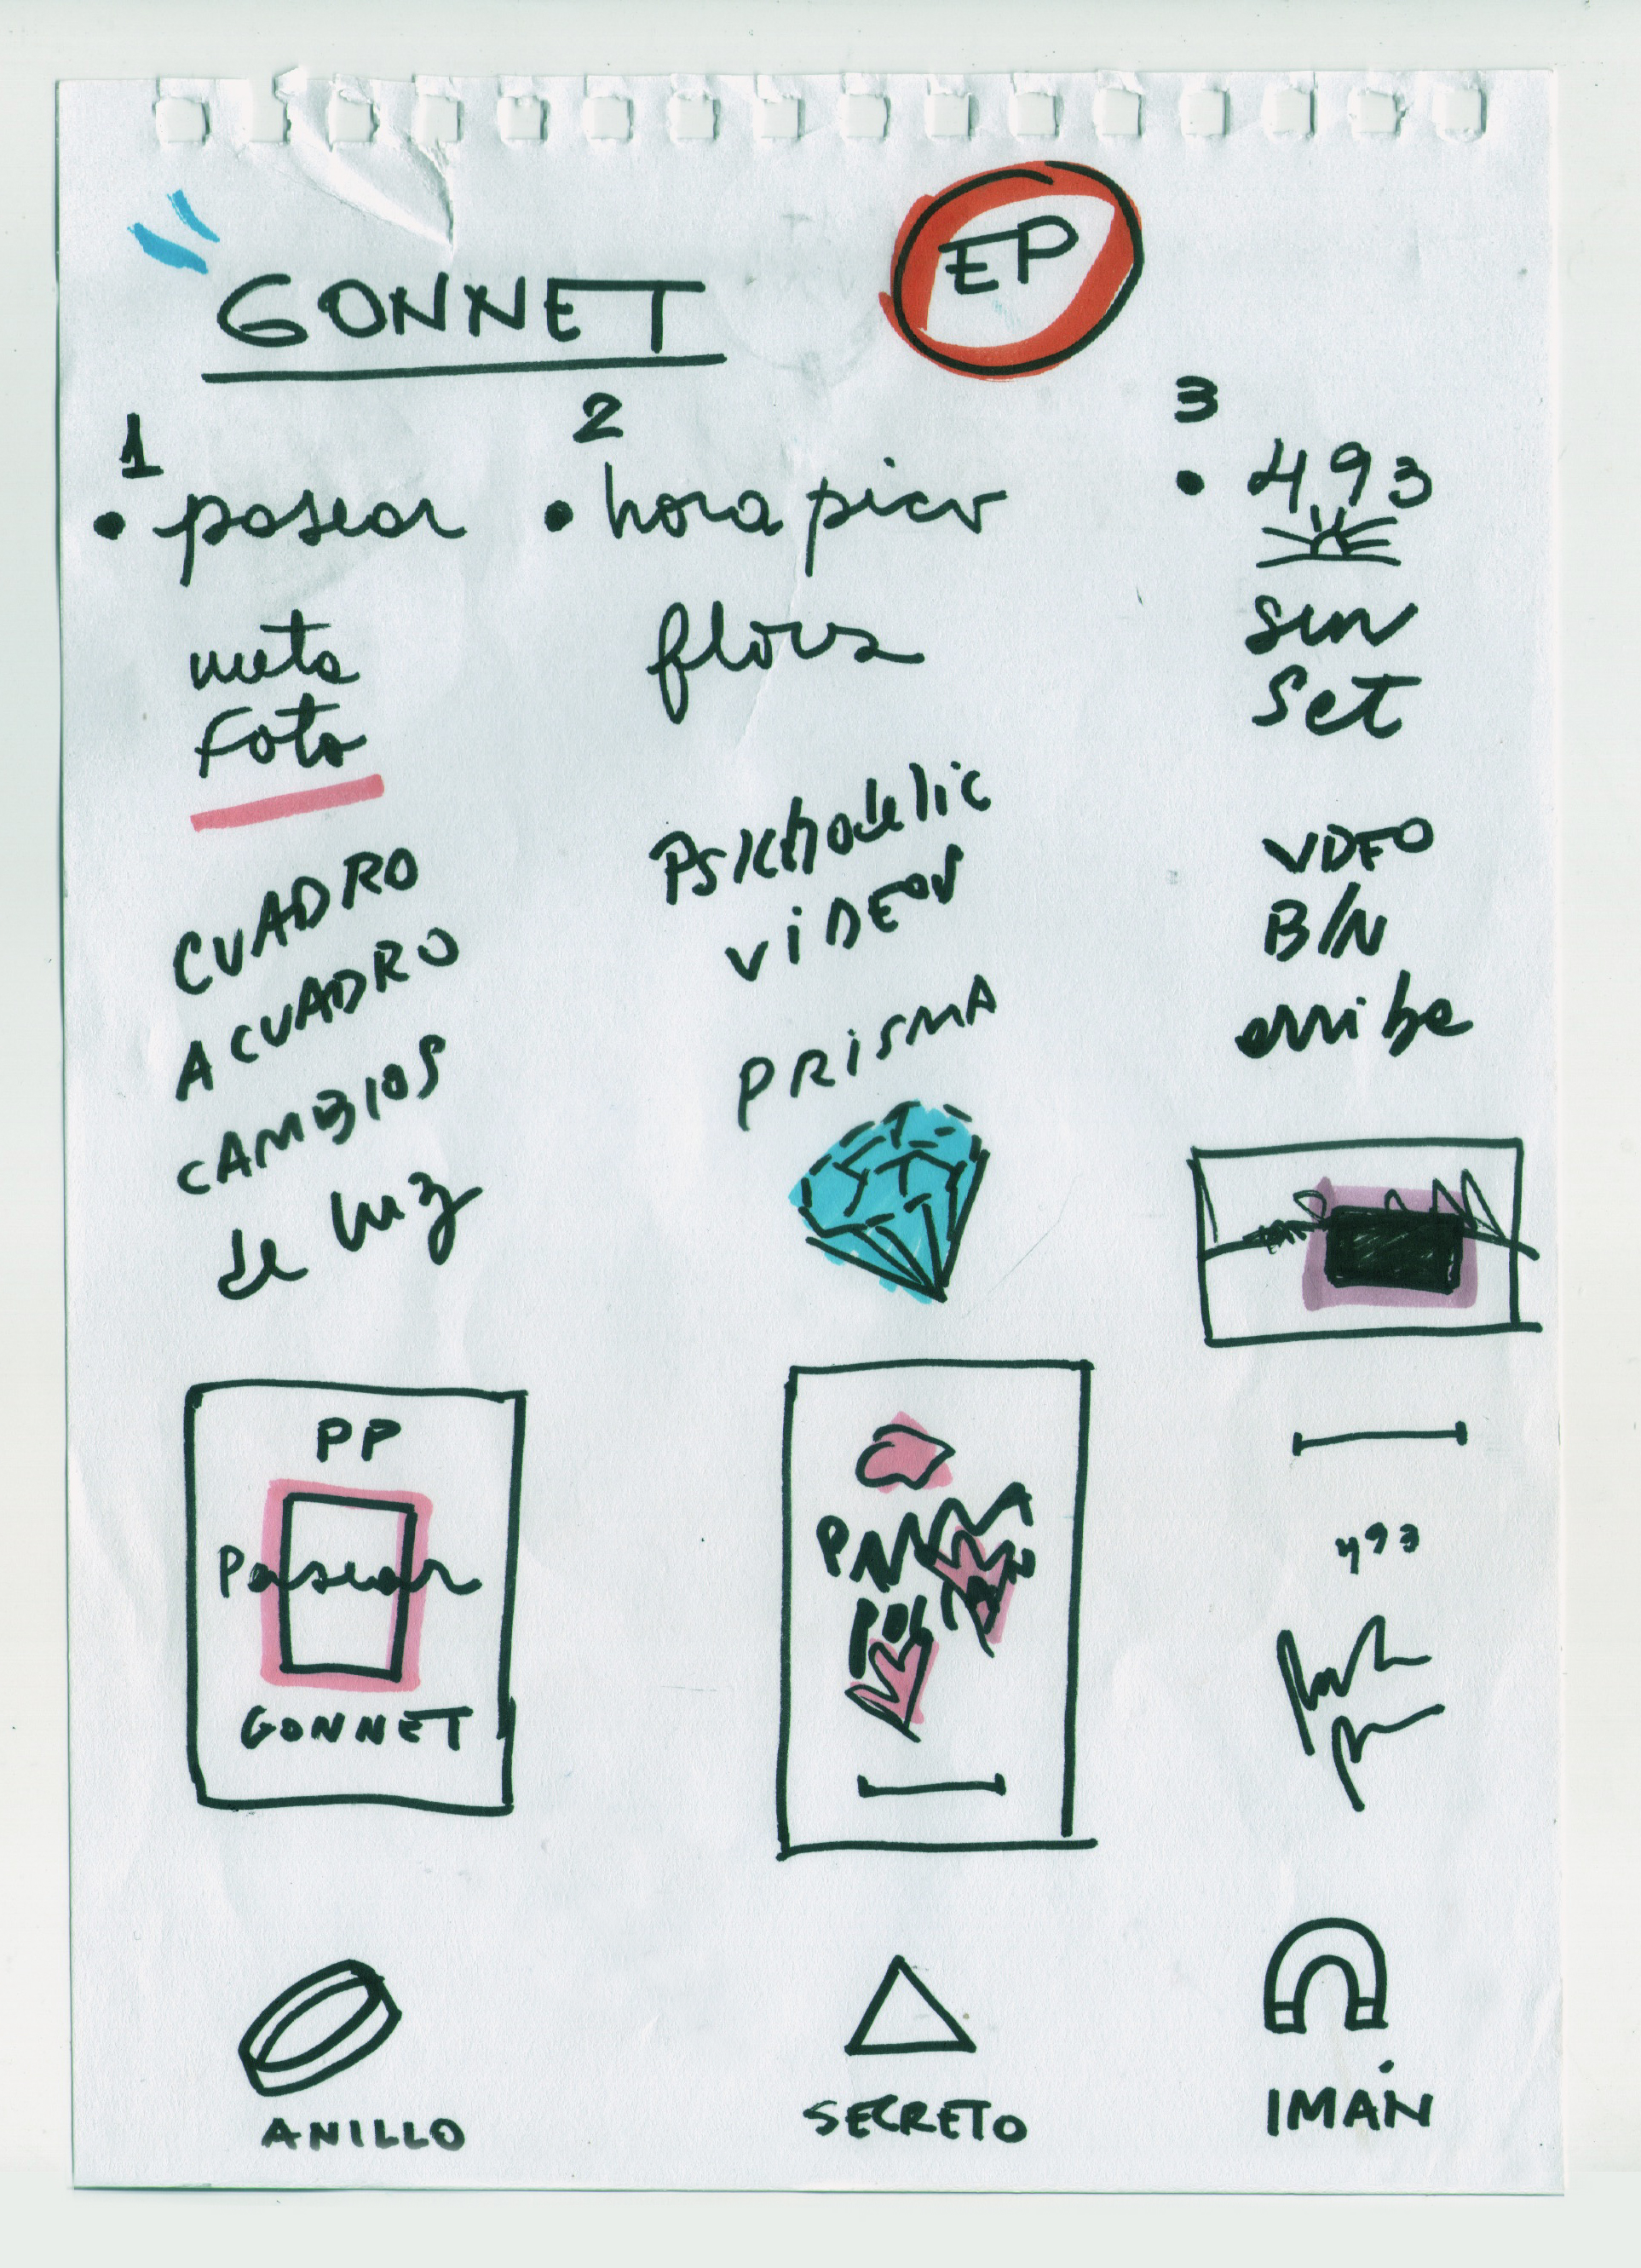 GONNET
EP
1
• pasear
meta
foto
CUADRO
A CUADRO
CAMBIOS
de luz
PP
Pasear
GONNET
ANILLO
2
• hora pico
flora
PSICHODELIC
VIDEOS
PRISMA
SECRETO
3
• 493
sun
Set
VIDEO
B/N
arriba
493
IMÁN